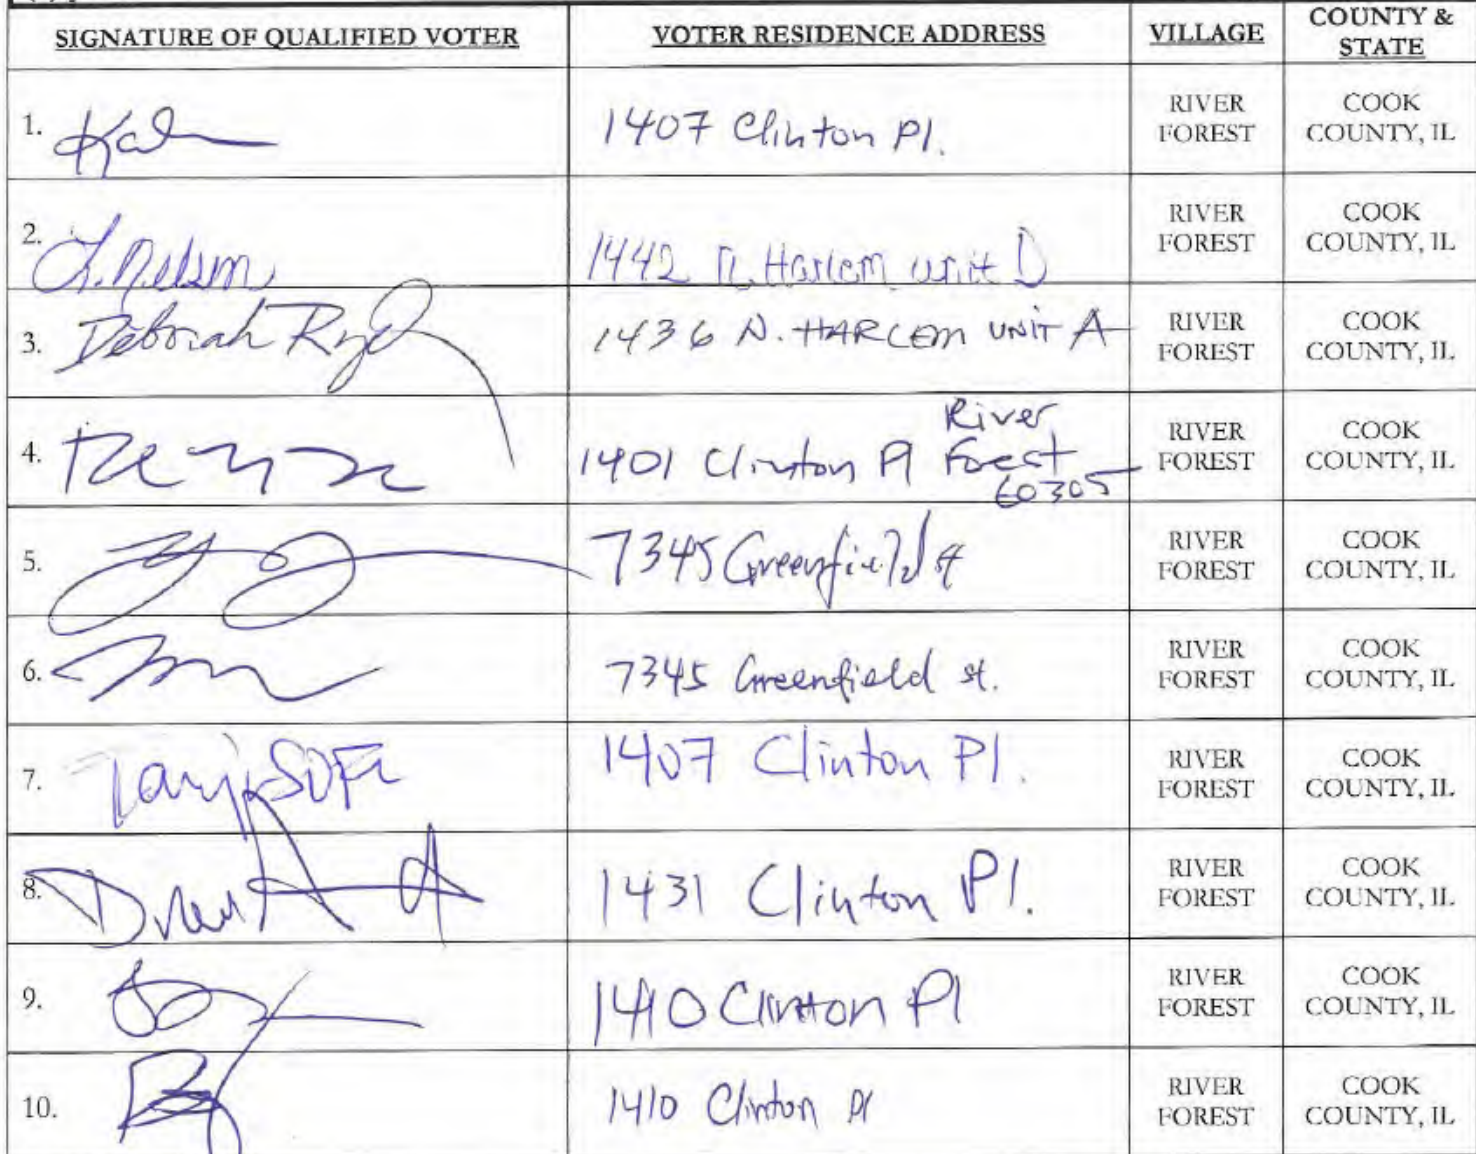 SIGNATURE OF QUALIFIED VOTER VOTER RESIDENCE ADDRESS VILLAGE COUNTY & STATE
1. 1407 Clinton Pl. RIVER FOREST COOK COUNTY, IL
2. L. Nelson 1442 N. Harlem unit D RIVER FOREST COOK COUNTY, IL
3. Deborah 1436 N. HARLEM UNIT A RIVER FOREST COOK COUNTY, IL
4. 1401 Clinton Pl River Forest 60305 RIVER FOREST COOK COUNTY, IL
5. 7345 Greenfield st RIVER FOREST COOK COUNTY, IL
6. 7345 Greenfield st. RIVER FOREST COOK COUNTY, IL
7. 1407 Clinton Pl. RIVER FOREST COOK COUNTY, IL
8. 1431 Clinton Pl. RIVER FOREST COOK COUNTY, IL
9. 1410 Clinton Pl RIVER FOREST COOK COUNTY, IL
10. 1410 Clinton Pl RIVER FOREST COOK COUNTY, IL